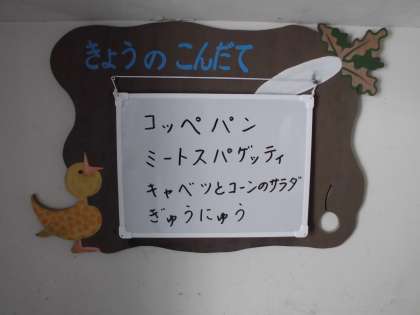 きょうのこんだて
コッペパン
ミートスパゲッティ
キャベツとコーンのサラダ
ぎゅうにゅう